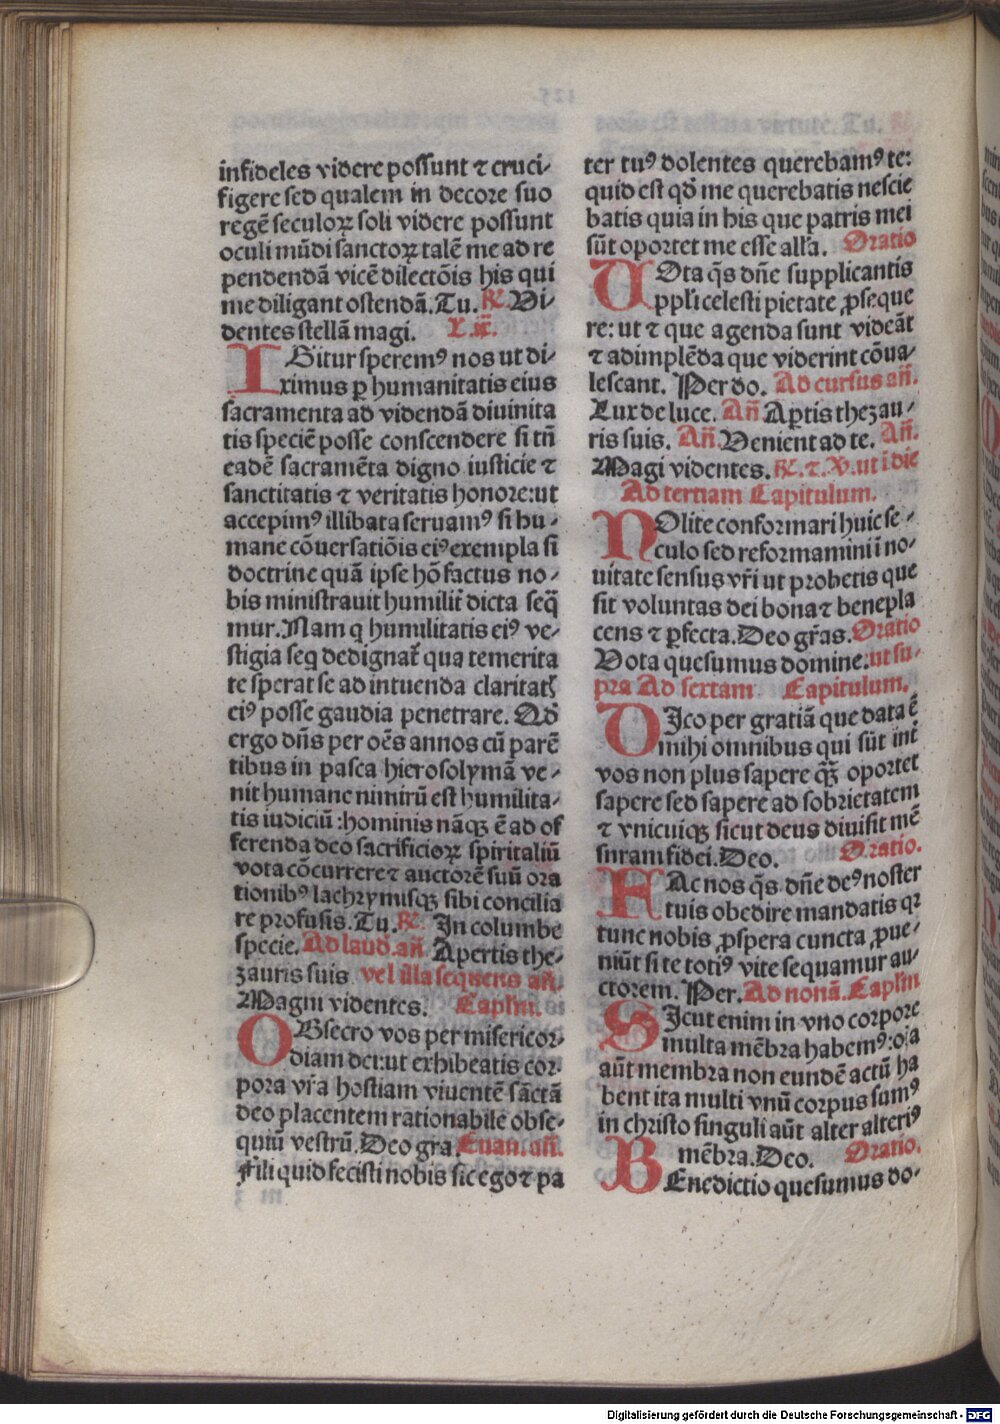 infideles videre possunt ⁊ cruci⸗
figere sed qualem in decore suo
regē seculoꝝ soli videre possunt
oculi mūdi sanctoꝝ talē me ad re
pendendā vicē dilectōis his qui
me diligant ostendā. Tu. ℟. Vi⸗
dentes stellā magi. L. ix.
IGitur speremꝰ nos ut di⸗
ximus ꝑ humanitatis eius
sacramenta ad videndā diuinita
tis speciē posse conscendere si tn̄
eadē sacramēta digno iusticie ⁊
sanctitatis ⁊ veritatis honore: ut
accepimꝰ illibata seruamꝰ si hu⸗
mane cōuersatiōis eiꝰ exempla si
doctrine quā ipse hō factus no⸗
bis ministrauit humilit̄ dicta seq̄
mur. Nam q humilitatis eiꝰ ve⸗
stigia seq dedignat̄ qua temerita
te sperat se ad intuenda claritatꝭ
eiꝰ posse gaudia penetrare. Qd̄
ergo dn̄s per oēs annos cū parē
tibus in pasca hierosolymā ve⸗
nit humane nimirū est humilita⸗
tis iudiciū: hominis nāqꝫ ē ad of
ferenda deo sacrificioꝝ spiritaliū
vota cōcurrere ⁊ auctorē suū ora
tionibꝰ lachrymisqꝫ sibi concilia
re profusis. Tu. ℟. In columbe
specie. Ad laud. an̄. Apertis the⸗
zauris suis vel illa sequens an̄.
Magi videntes. Caplm̄.
OBsecro vos per misericor⸗
diam dei: ut exhibeatis cor⸗
pora vr̄a hostiam viuentē sāctā
deo placentem rationabile obse⸗
quiū vestrū. Deo gra. Euan. an̄.
Fili quid fecisti nobis sic ego ⁊ pa
ter tuꝰ dolentes querebamꝰ te:
quid est qd̄ me querebatis nescie
batis quia in his que patris mei
sūt oportet me esse alla. Oratio
VOta q̄s dn̄e supplicantis
ppl̓i celesti pietate ꝓseque
re: ut ⁊ que agenda sunt videāt
⁊ adimplēda que viderint cōua⸗
lescant. Per do. Ad cursus an̄.
Lux de luce. An̄ Aꝑtis thezau⸗
ris suis. An̄. Venient ad te. An̄.
Magi videntes. ℟. ⁊. ℣. ut ī die
Ad tertiam Capitulum.
NOlite conformari huic se⸗
culo sed reformamini ī no⸗
uitate sensus vr̄i ut probetis que
sit voluntas dei bona ⁊ benepla
cens ⁊ ꝑfecta. Deo gr̄as. Oratio
Vota quesumus domine: ut su⸗
pra Ad sextam Capitulum.
DIco per gratiā que data ē
mihi omnibus qui sūt int̄
vos non plus sapere qꝫ̄ oportet
sapere sed sapere ad sobrietatem
⁊ vnicuiqꝫ sicut deus diuisit mē
suram fidei. Deo. Oratio.
FAc nos q̄s dn̄e deꝰ noster
tuis obedire mandatis qꝛ
tunc nobis ꝓspera cuncta ꝓue⸗
niūt si te totiꝰ vite sequamur au⸗
ctorem. Per. Ad nonā. Caplm̄
SIcut enim in vno corpore
multa mēbra habemꝰ: oīa
aūt membra non eundē actū ha
bent ita multi vnū corpus sumꝰ
in christo singuli aūt alter alteriꝰ
mēbra. Deo. Oratio.
BEnedictio quesumus do⸗
Digitalisierung gefördert durch die Deutsche Forschungsgemeinschaft - DFG